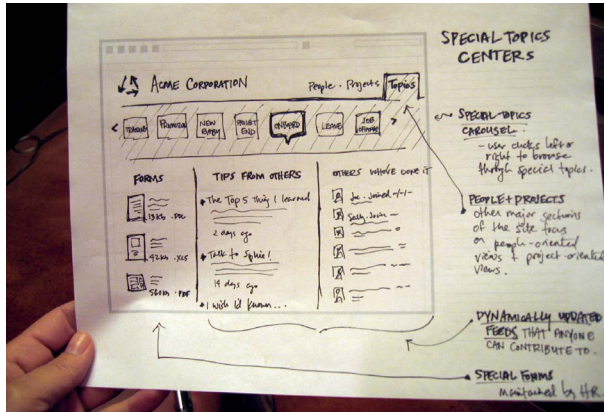 SPECIAL TOPICS
CENTERS
ACME CORPORATION
People · Projects
Topics
< TRAINING
PROMOTION
NEW
BABY
PROJECT
END
ONBOARD
LEAVE
JOB
CHANGE
>
FORMS
13kb .DOC
42kb .XLS
560kb .PDF
TIPS FROM OTHERS
The Top 5 thing I learned
2 days ago
Talk to Sophie!
14 days ago
I wish I'd known...
OTHERS WHO'VE DONE IT
Joe - Joined -/-/-
Sally - Join
SPECIAL-TOPICS
CAROUSEL
- user clicks left or
right to browse
through special topics.
PEOPLE + PROJECTS
other major sections
of the site focus
on people-oriented
views + project-oriented
views.
DYNAMICALLY UPDATED
FEEDS THAT ANYONE
CAN CONTRIBUTE TO.
SPECIAL FORMS
maintained by HR.